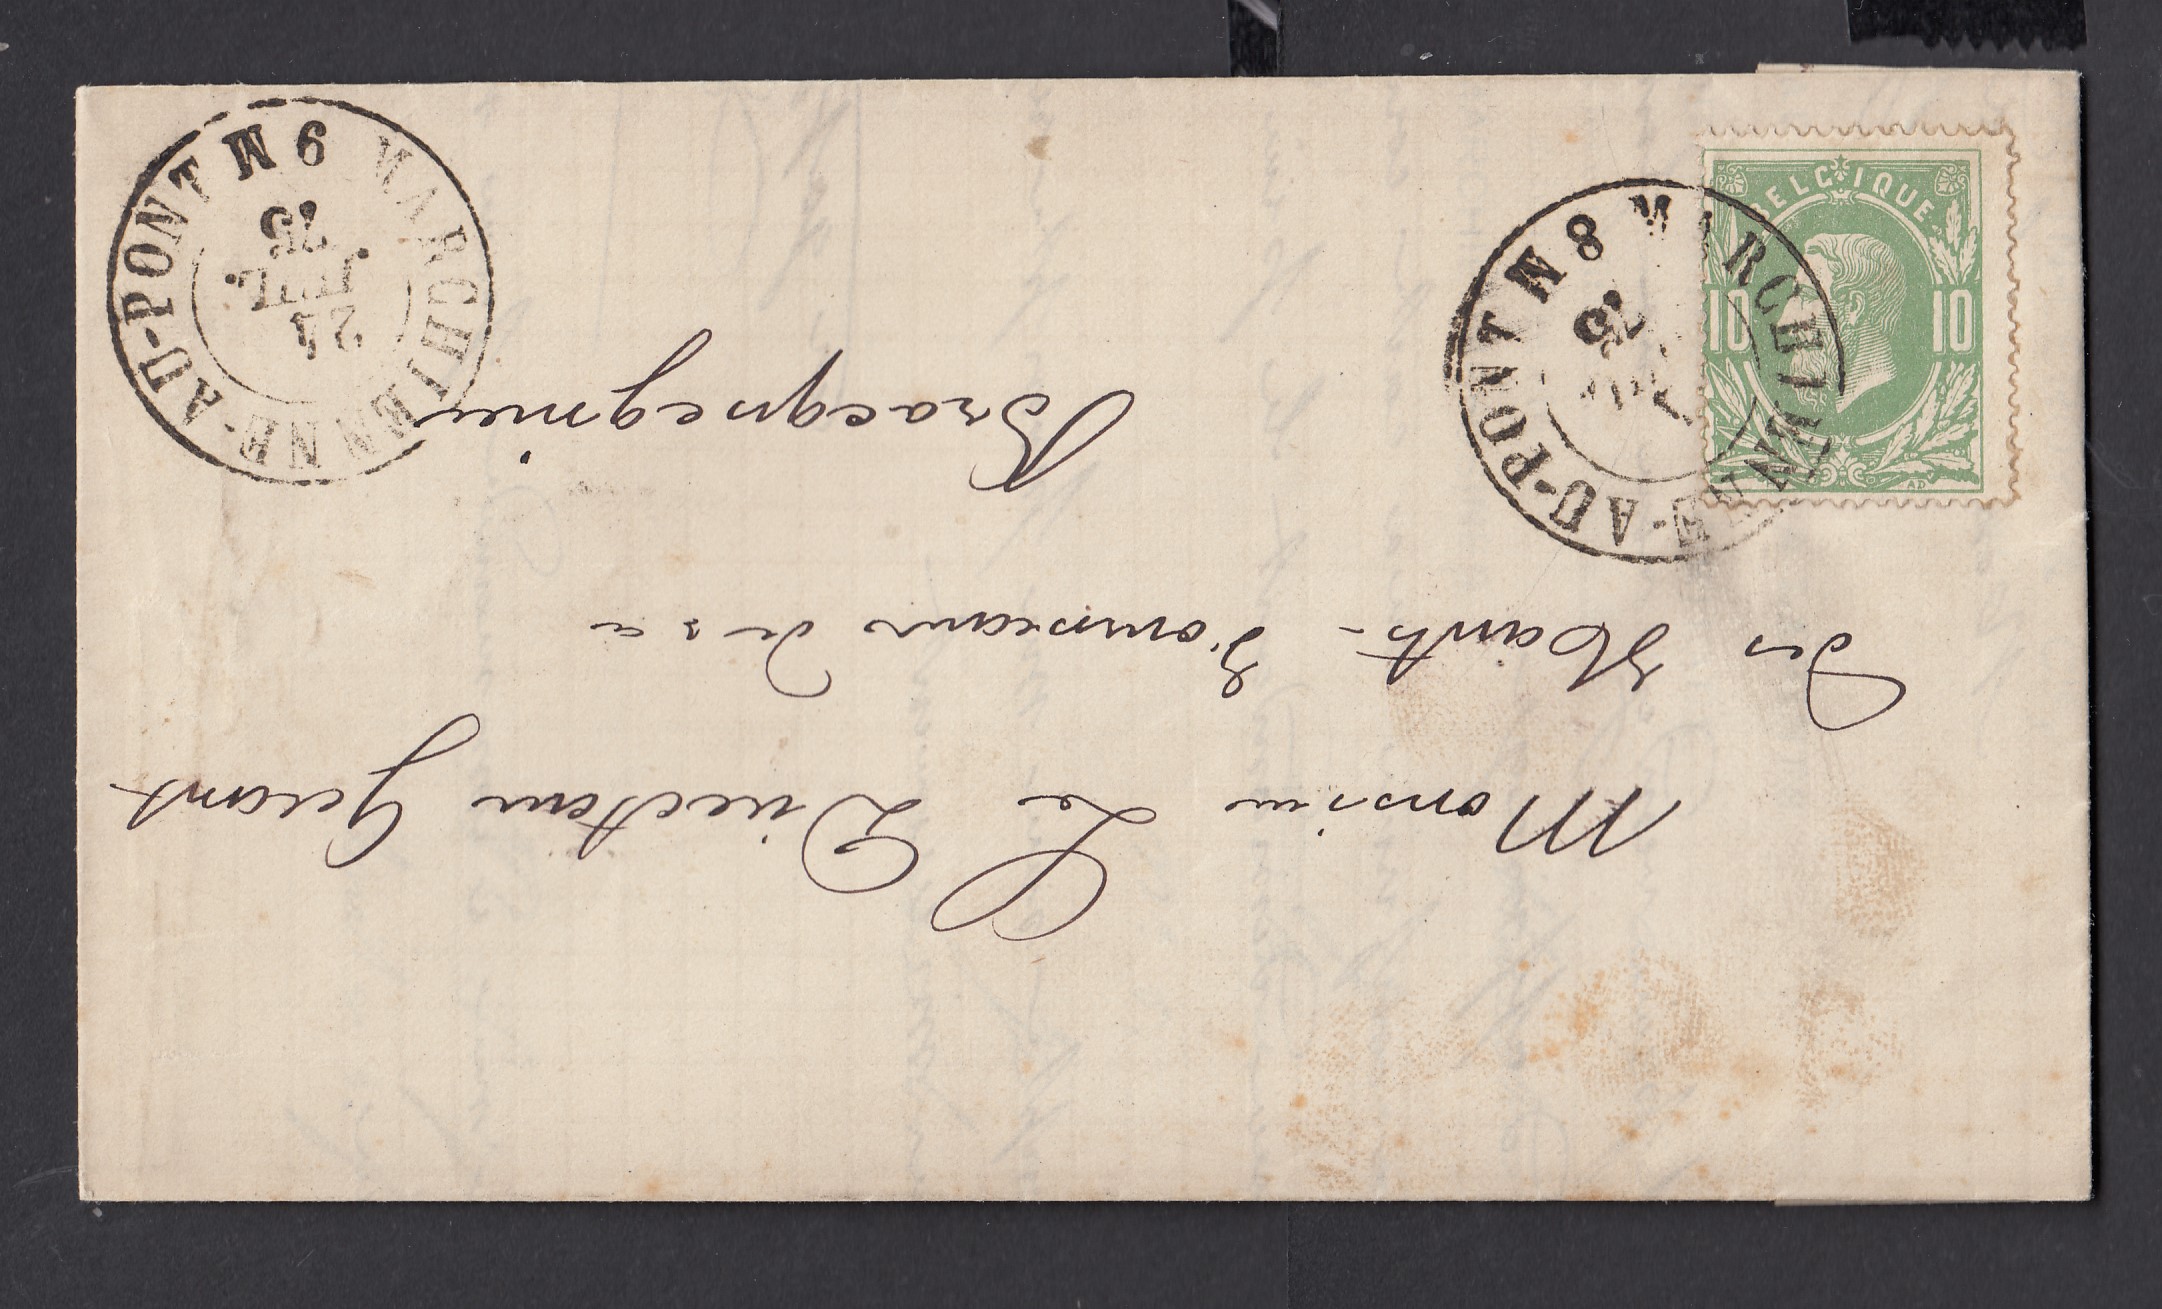 BELGIQUE
10 10
MARCHIENNE-AU-PONT
8 M
75
MARCHIENNE-AU-PONT
6 M
24
JUIL.
75
Monsieur Le Directeur Gerant
des Hauts-Fourneaux de &a
Bracquegnies